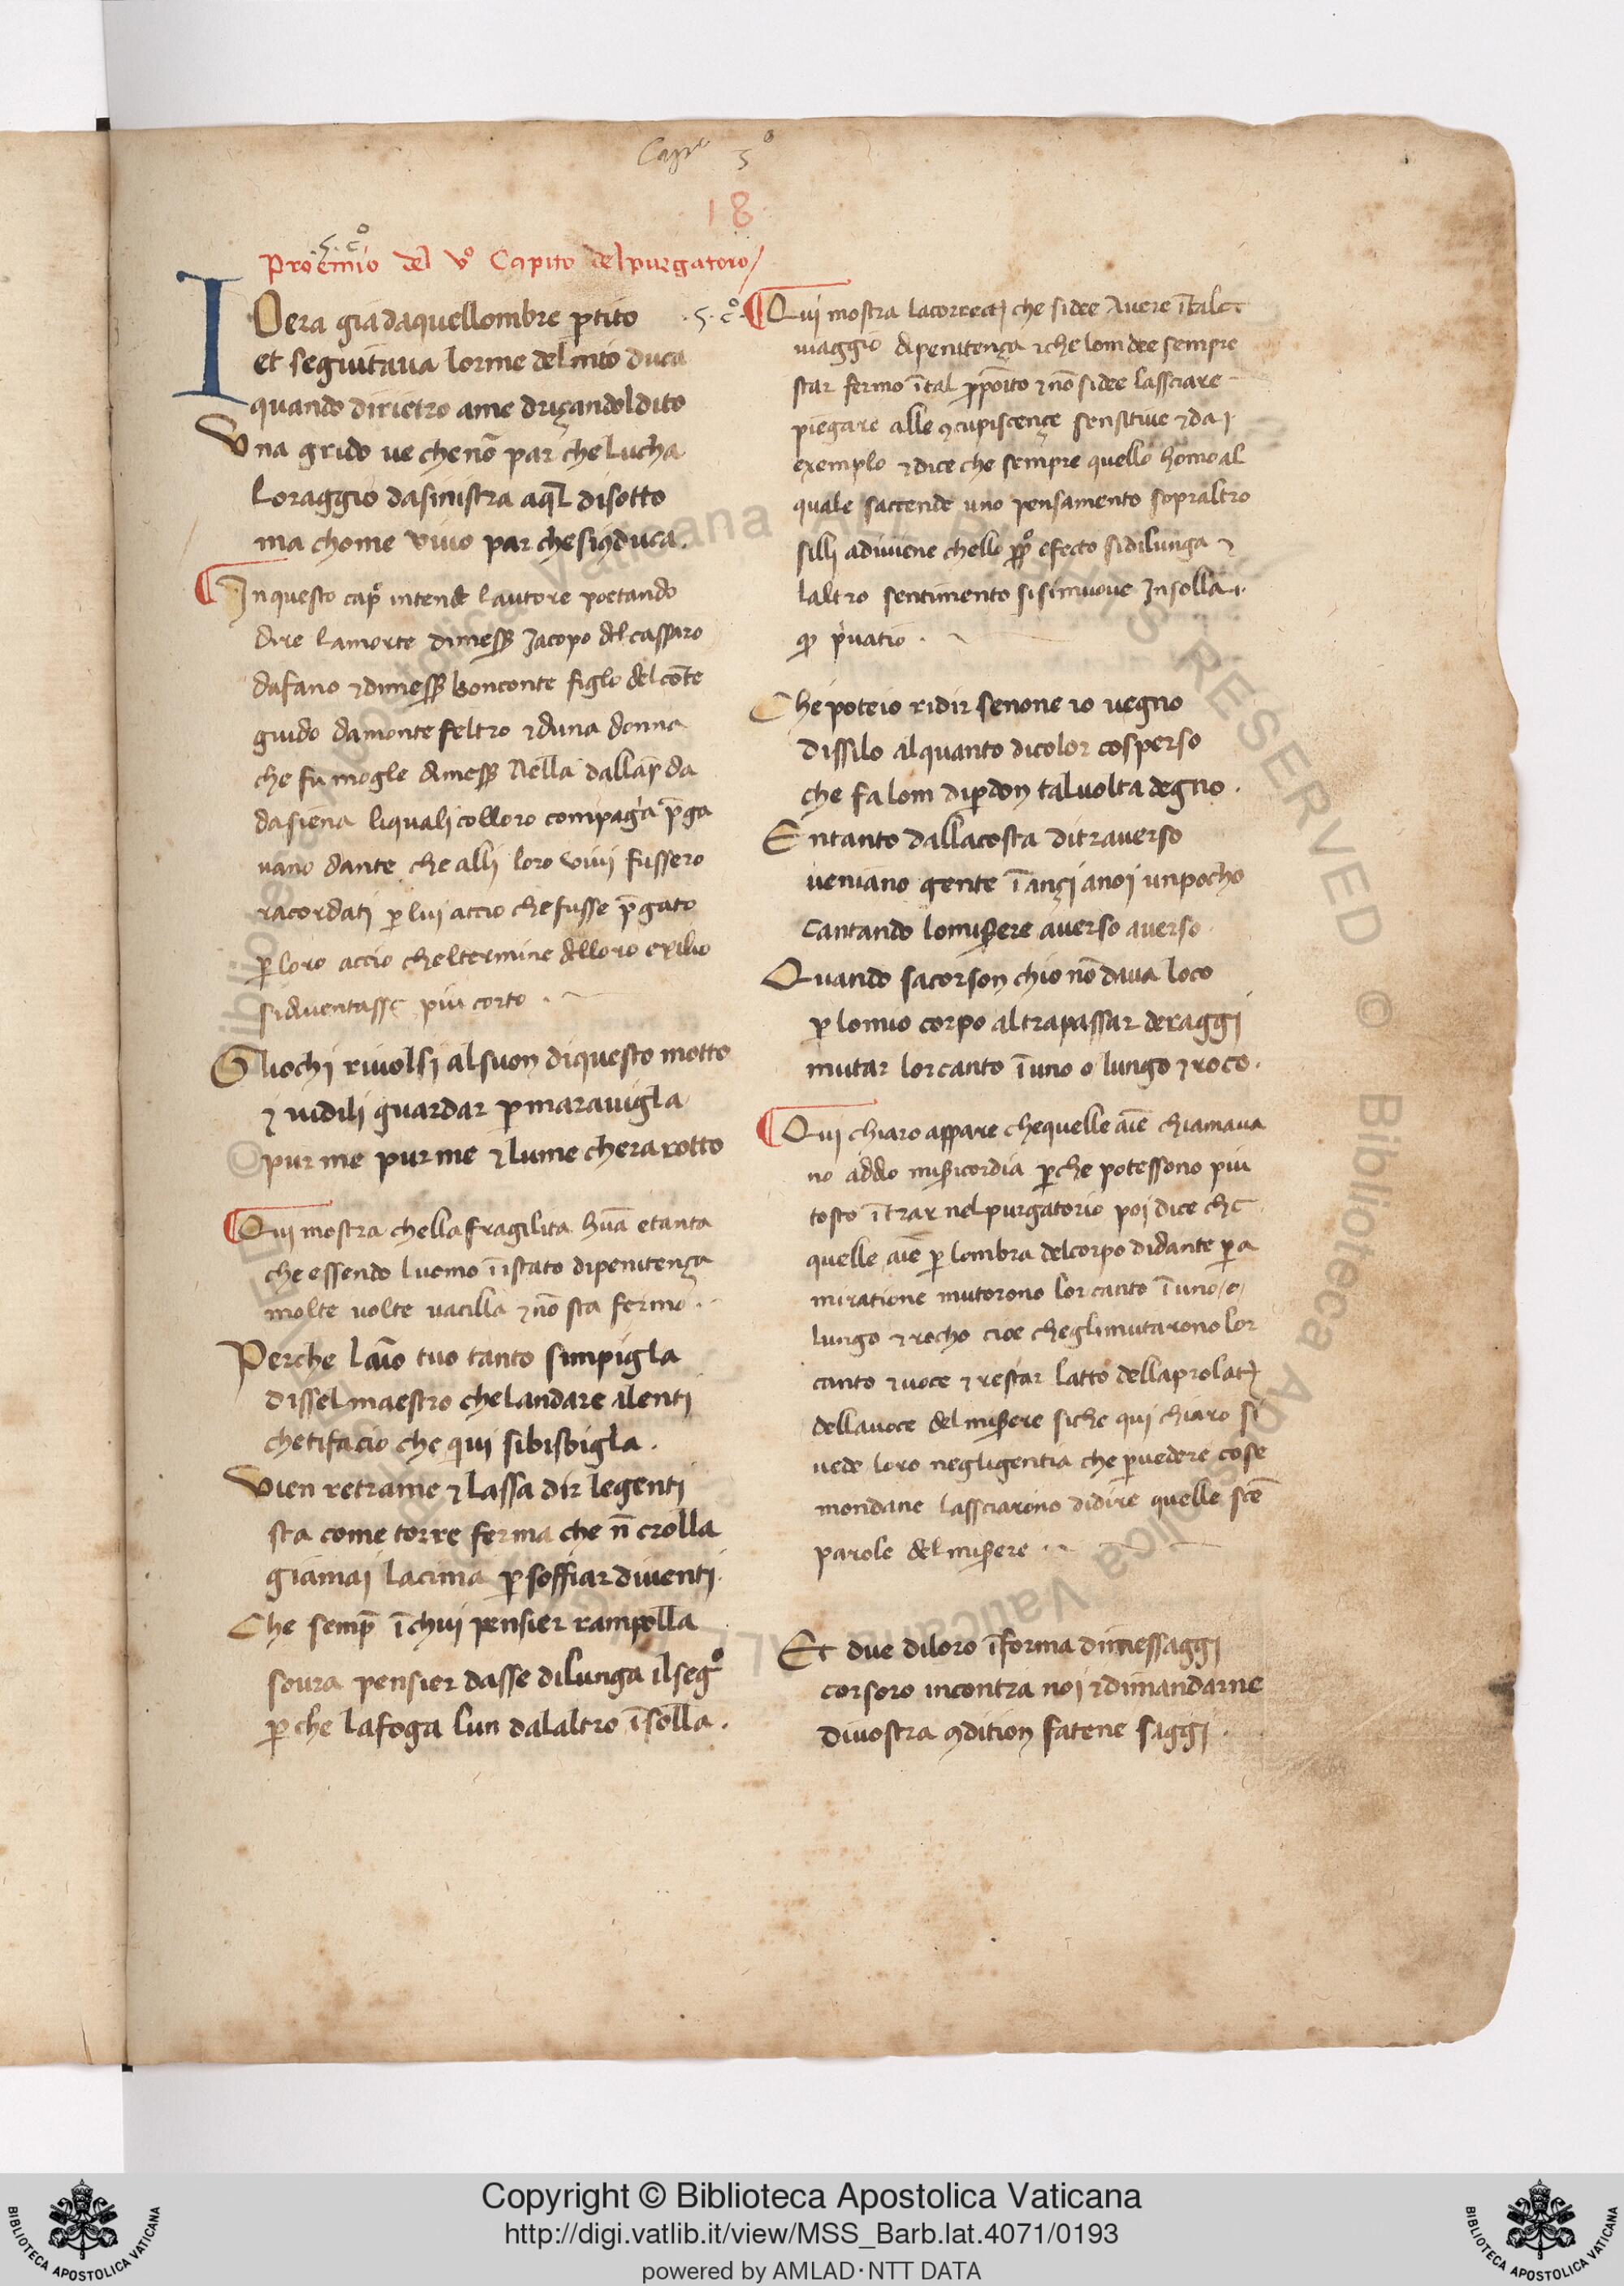 Cap.º 5º
18
.5.cº
Proemio del vº Capito del purgatoro
IOera gia da quellombre ꝑtito
et seguitaua lorme del mio duca
quando dirietro ame driçandoldito
Vna grido ue chenō par che lucha
Loraggio dasinistra aq̄l disotto
ma chome viuo par che siꝯduca.
Inquesto capº intende lautore poetando
dire lamorte dimess̄ Jacopo del cassaro
dafano ⁊ dimess̄ bonconte figlo del cōte
guido damonte feltro ⁊ duna donna
che fu mogle dmess̄ Nella dallap̄ da
dasiena liquali colloro compagīa p̄ga
uano dante che alli loro viui fussero
racordati ꝑ lui accio che fusse p̄gato
ꝑ loro accio cheltermine delloro exilio
sidiuentasse piu corto .
Gliochi riuolsi alsuon diquesto motto
⁊ uidili guardar ꝑ marauigla
pur me pur me ⁊ lume chera rotto
Qui mostra chella fragilita huāa etanta
che essendo luomo ī istato dipenitença
molte uolte uacilla ⁊ nō sta fermo .
Perche laīo tuo tanto simpigla
dissel maestro che landare alenti
chetifacio che qui sibisbigla .
Vien retrame ⁊ lassa dir legenti
sta come torre ferma che n̄ crolla
giamai lacima ꝑ soffiar diuenti.
Che semp̄ ī chui pensier rampolla
soura pensier dasse dilunga ilsegº
ꝑ che lafoga lun dalaltro īsolla .
.5.cº. Qui mostra lacorrect che sidee Auere ītale
uiaggio dipenitença ⁊ che lom dee sempre
star fermo ī tal ꝓpōito ⁊ nō sidee lassciare
piegare alle ꝯcupiscençe sensitiue ⁊ da j
exemplo ⁊ dice che sempre quello homo al
quale saccende uno pensamento sopraltro
silli adiuiene chello ꝓpº efecto sidilunga ⁊
laltro sentimento sisimuoue Insolla .i.
ꝙ p̄uatio .
Che poteio ridir senone io uegno
dissilo alquanto dicolor cosperso
che fa lom diꝑdon taluolta degno .
Entanto dallacosta ditrauerso
ueniano gente īançi anoi unpocho
cantando lomiꝑere auerso auerso
Quando sacorson chio nō daua loco
ꝑ lomio corpo altrapassar deraggi
mutar lorcanto ī uno o lungo ⁊ roco .
Qui chiaro appare chequelle aīe chiamaua
no addio miꝑicordia ꝑche potessono piu
tosto ītrar nel purgatorio poi dice che
quelle aīe ꝑ lombra delcorpo didante ꝑ a
miratione mutorono lor canto ī uno/o/
lungo ⁊ rocho cioe chegli mutarono lor
canto ⁊ uoce ⁊ restar latto dellaprolat
dellauoce del miꝑere siche qui chiaro si
uede loro negligentia che ꝑ uedere cose
mondane lassciarono didire quelle scē
parole del miꝑere
Et due diloro īforma dimessaggi
corsoro incontra noi ⁊ dimandarne
diuostra ꝯdition fatene saggi .
Copyright © Biblioteca Apostolica Vaticana
http://digi.vatlib.it/view/MSS_Barb.lat.4071/0193
powered by AMLAD·NTT DATA
BIBLIOTECA APOSTOLICA VATICANA
BIBLIOTECA APOSTOLICA VATICANA